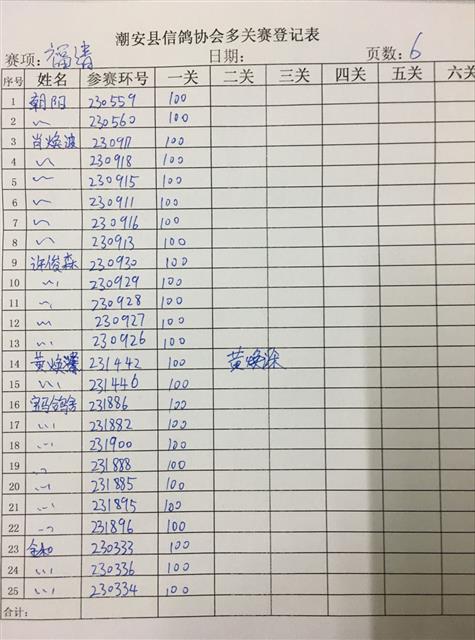 潮安县信鸽协会多关赛登记表
赛项：福清 日期： 页数：6
序号 姓名 参赛环号 一关 二关 三关 四关 五关 六关
1 朝阳 230559 100
2 〃 230560 100
3 肖焕波 230917 100
4 〃 230918 100
5 〃 230915 100
6 〃 230911 100
7 〃 230916 100
8 〃 230913 100
9 许俊森 230930 100
10 〃 230929 100
11 〃 230928 100
12 〃 230927 100
13 〃 230926 100
14 黄焕深 231442 100 黄焕深
15 〃 231446 100
16 宝马鸽舍 231886 100
17 〃 231882 100
18 〃 231900 100
19 〃 231888 100
20 〃 231885 100
21 〃 231895 100
22 〃 231896 100
23 230333 100
24 〃 230336 100
25 〃 230334 100
合计：